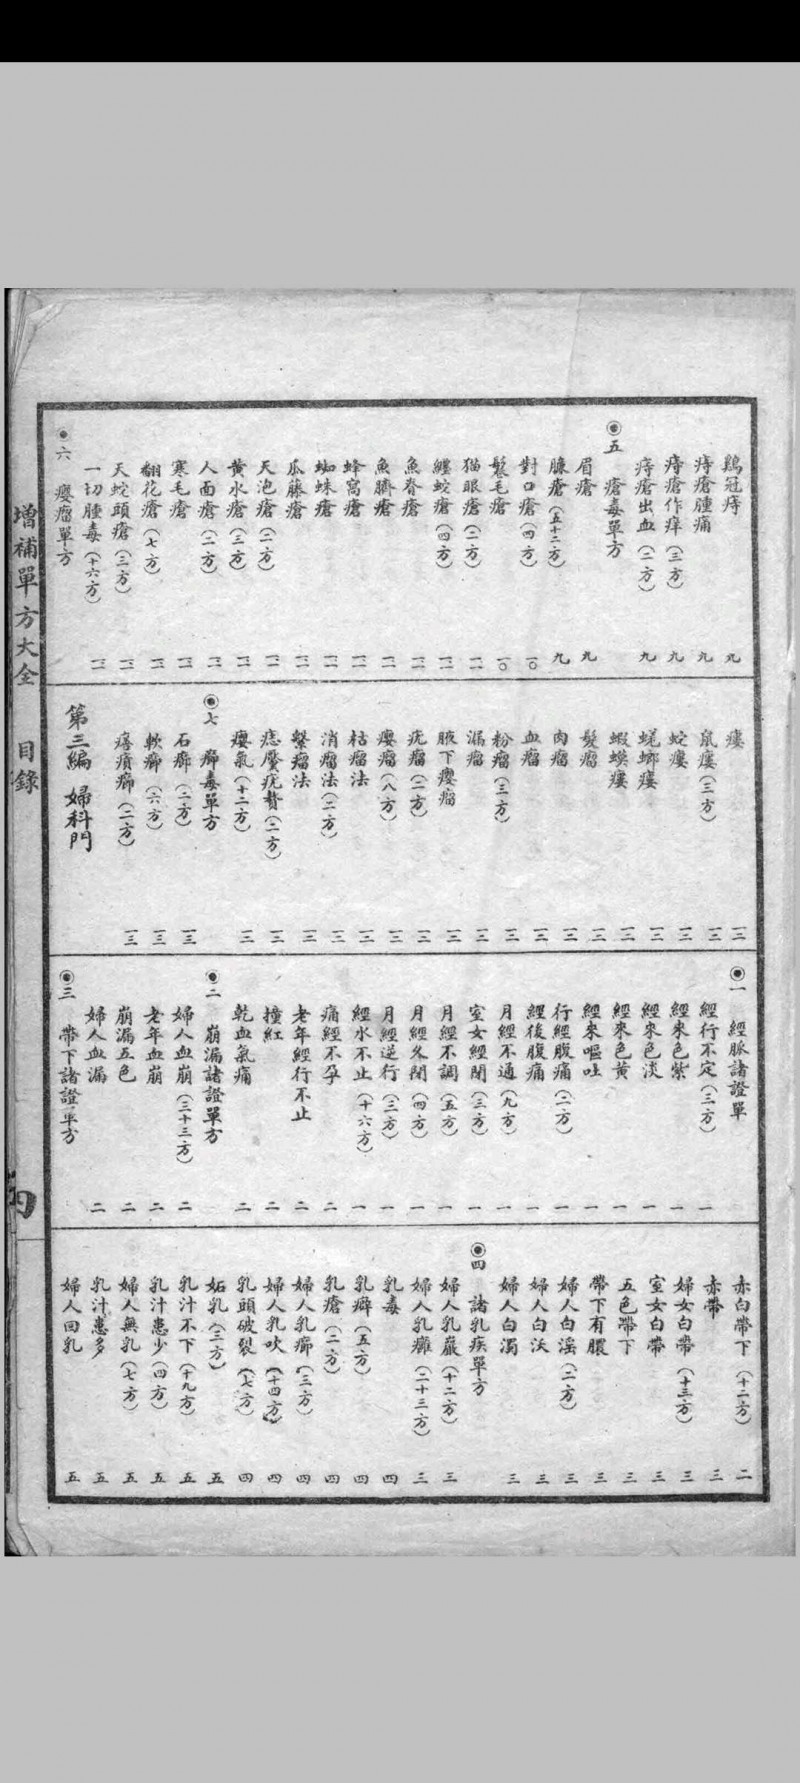 鷄冠痔 九
痔瘡腫痛 九
痔瘡作痒(三方) 九
痔瘡出血(二方) 九
◉五 瘡毒單方
眉瘡 九
臁瘡(五十二方) 九
對口瘡(四方) 一〇
鬚毛瘡 一〇
猫眼瘡(二方) 一一
纏蛇瘡(四方) 一一
魚脊瘡
魚臍瘡
蜂窩瘡
蜘蛛瘡
瓜藤瘡
天泡瘡(二方)
黄水瘡(三方)
人面瘡(二方)
寒毛瘡
翻花瘡(七方)
天蛇頭瘡(三方)
一切腫毒(十六方)
◉六 癭瘤單方
瘻
鼠瘻(三方)
蛇瘻
蜣螂瘻
蝦蟆瘻
髮瘤
肉瘤
血瘤
粉瘤(三方)
漏瘤
腋下癭瘤
疣瘤(二方)
癭瘤(八方)
枯瘤法
消瘤法(二方)
繫瘤法
痣黶疣贅(二方)
癭氣(十二方)
◉七 癤毒單方
石癤(二方)
軟癤(六方)
瘖㿉癤(二方)
第三編 婦科門
◉一 經脈諸證單
經行不定(三方) 一
經來色紫 一
經來色淡 一
經來色黄 一
經來嘔吐 一
行經腹痛(二方) 一
經後腹痛 一
月經不通(九方) 一
室女經閉(三方) 一
月經不調(五方) 一
月經久閉(四方) 一
月經逆行(三方) 一
經水不止(十六方) 一
痛經不孕 二
老年經行不止 二
撞紅 二
乾血氣痛 二
◉二 崩漏諸證單方
婦人血崩(三十三方) 二
老年血崩 二
崩漏五色 二
婦人血漏 二
◉三 帶下諸證單方
赤白帶下(十二方) 二
赤帶 三
婦女白帶(十三方) 三
室女白帶 三
五色帶下 三
帶下有膿 三
婦人白淫(二方) 三
婦人白沃 三
婦人白濁 三
◉四 諸乳疾單方
婦人乳巖(十二方) 三
婦人乳癰(二十三方) 三
乳毒 四
乳癖(五方) 四
乳瘡(二方) 四
婦人乳癤(三方) 四
婦人乳吹(十四方) 四
乳頭破裂(七方) 四
妬乳(三方) 五
乳汁不下(十九方) 五
乳汁患少(四方) 五
婦人無乳(七方) 五
乳汁患多 五
婦人回乳 五
增補單方大全 目錄